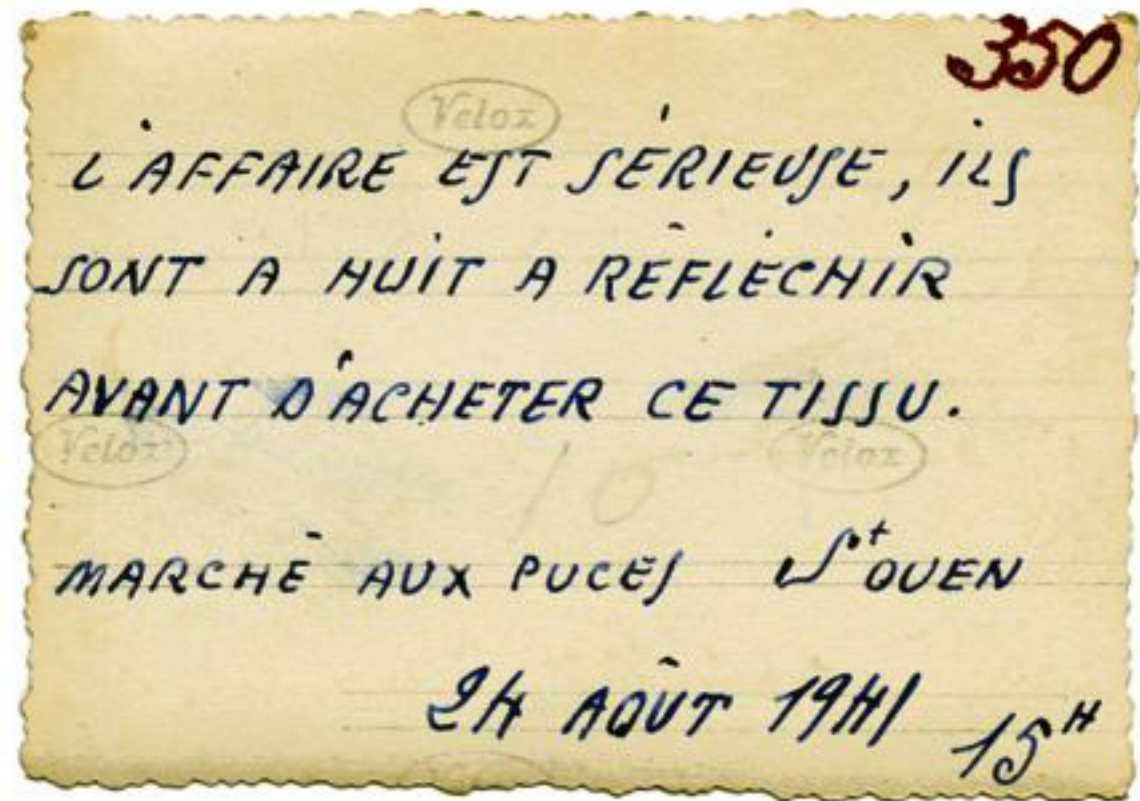 350
Velox
L'AFFAIRE EST SÉRIEUSE, ILS
SONT A HUIT A RÉFLÉCHIR
AVANT D'ACHETER CE TISSU.
Velox Velox
10
MARCHÉ AUX PUCES St OUEN
24 AOÛT 1941 15H